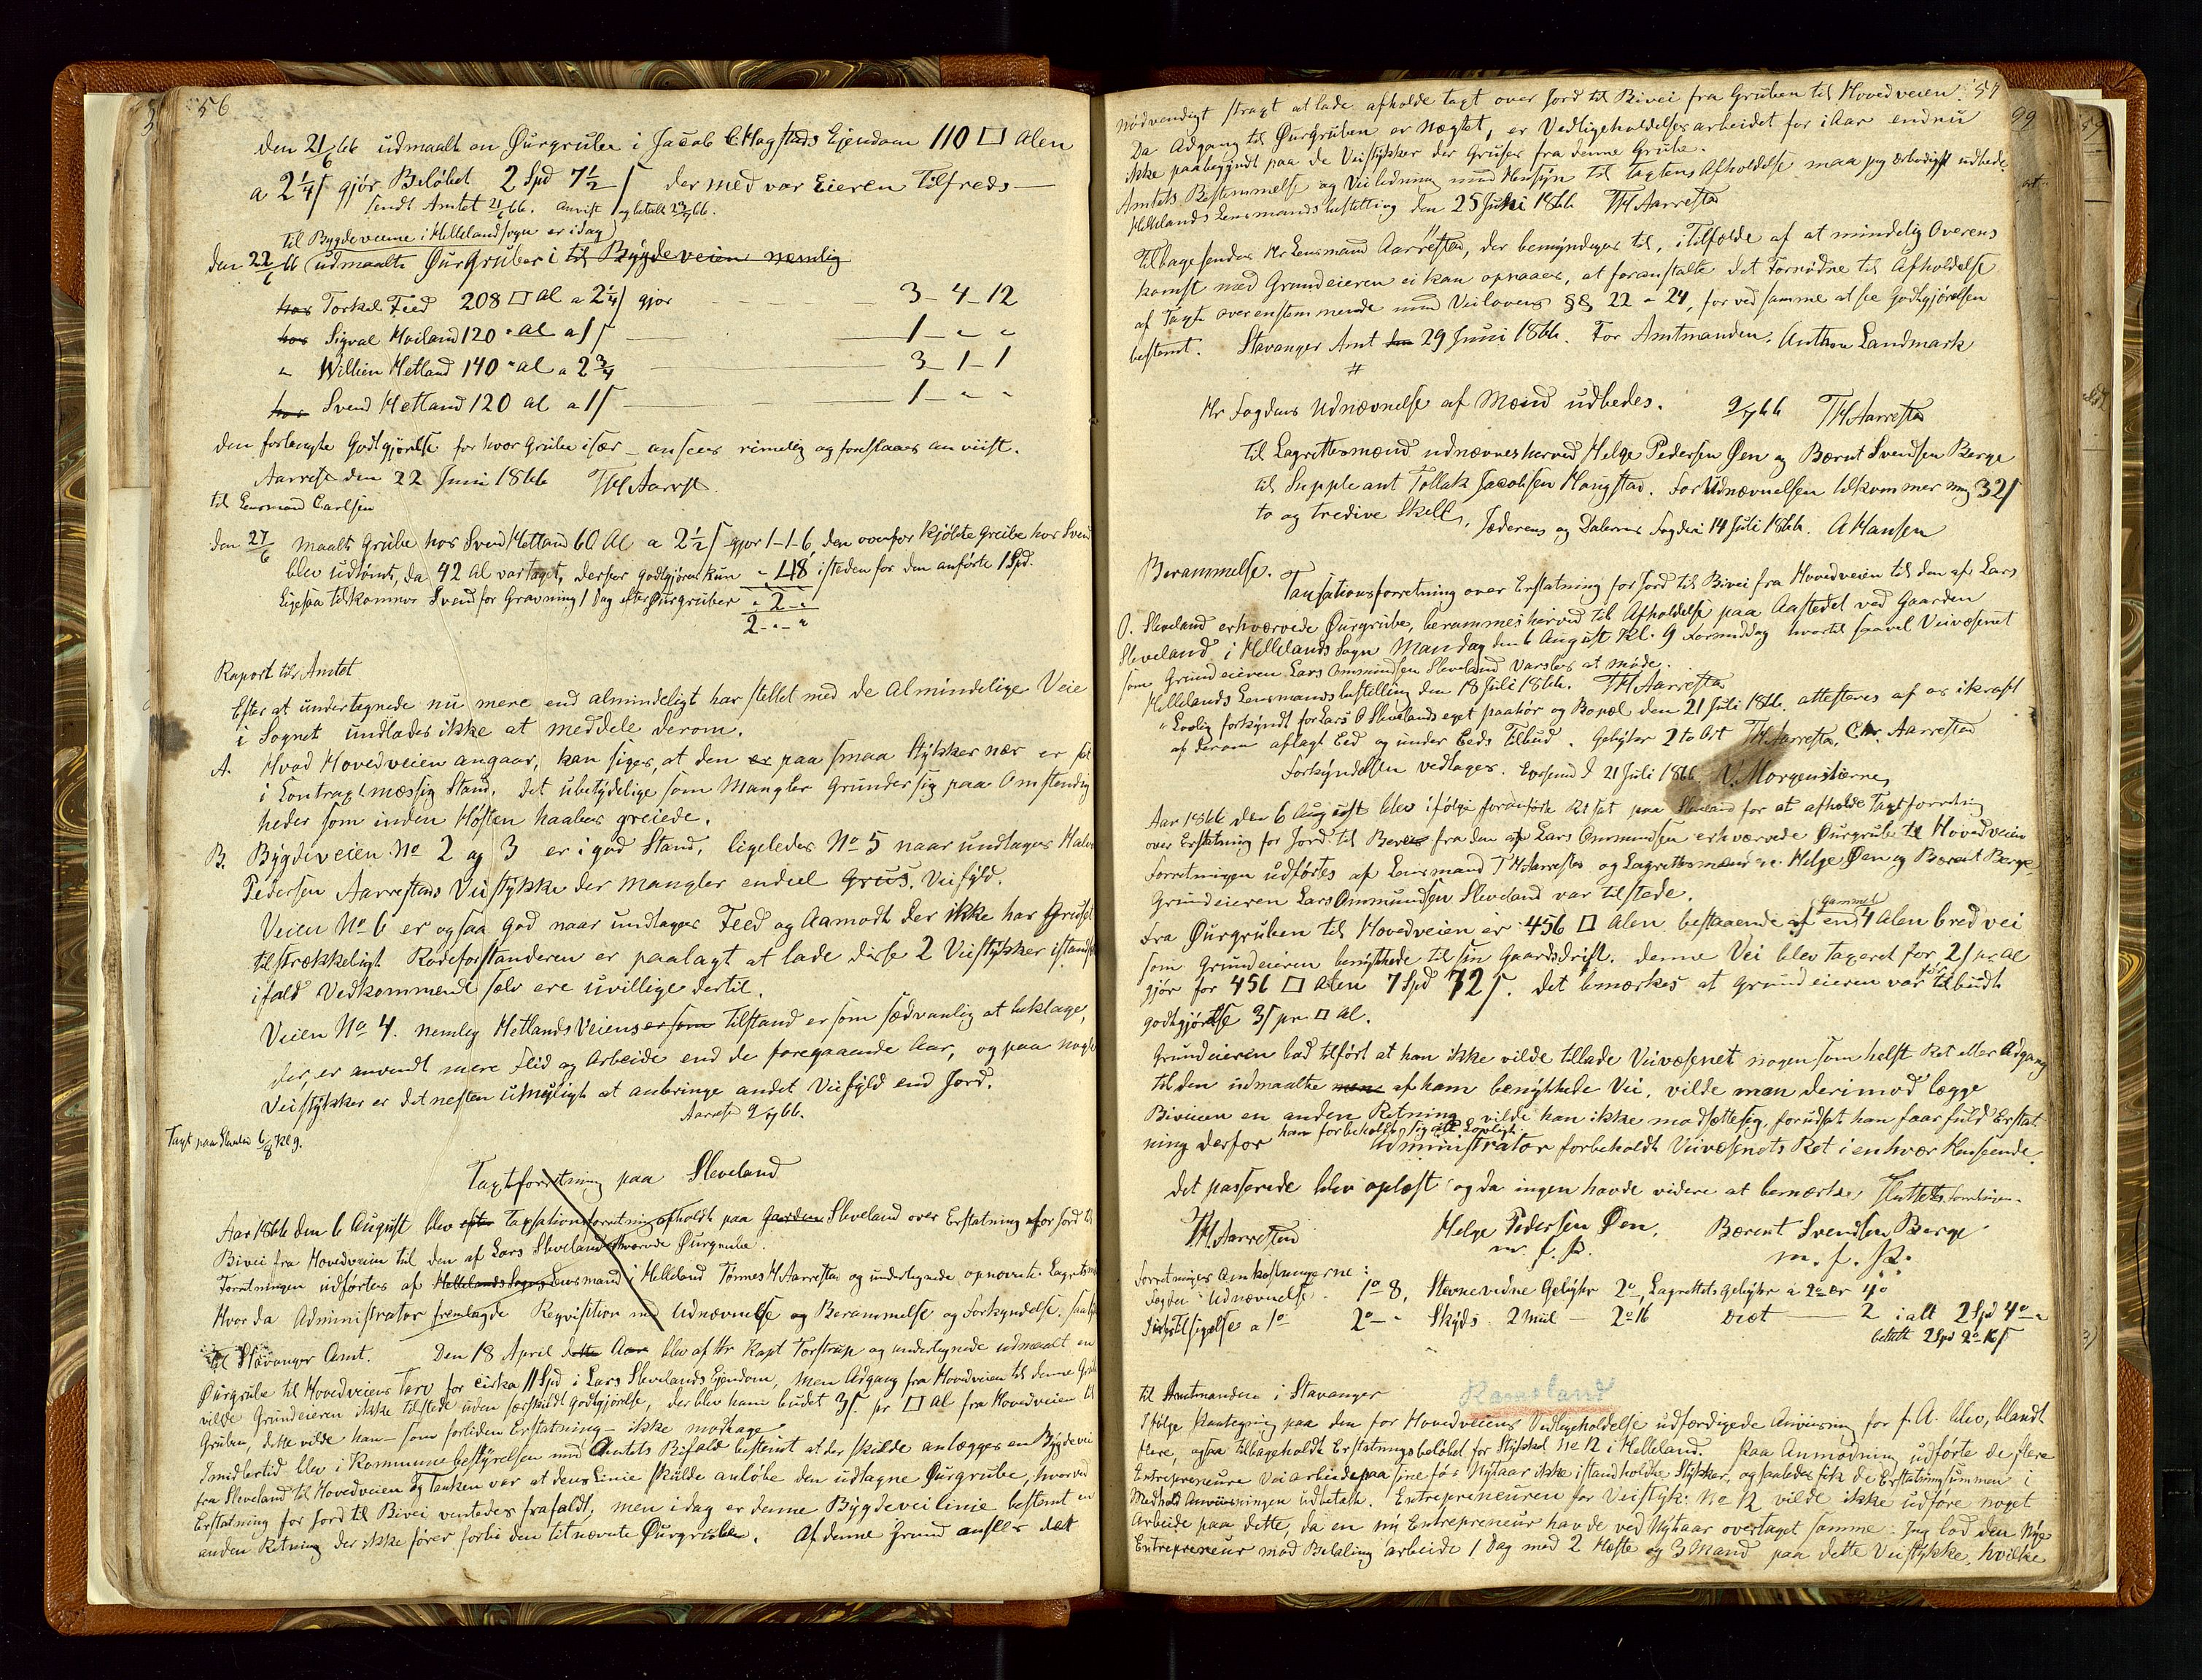 56
den 21/6 66 udmaalt en Øurgrube i Jacob C. Hagstads Ejendom 110 □ Alen
a 2 1/4 s gjør Beløbet 2 Spd 7 1/2 s der med var Eieren Tilfreds —
sendt Amtet 21/6 66. Anvist og betalt 23/7 66.
til Bygdeveiene i Hellelandsogn er idag
den 22/6 66 udmaalte Øurgruber i til Bygdeveien nemlig
hos Torkel Feed 208 □ al a 2 1/4 s gjør 3 - 4 - 12
hos Sigval Hailand 120 " al a 1 s 1 - " "
" Willien Hetland 140 " al a 2 3/4 3 - 1 - 1
hos Svend Hetland 120 al a 1 s 1 - " "
den forlangte Godtgjørelse for hver Grube især - ansees rimelig og foreslaaes anviist.
Aarrest den 22 Juni 1866 TH Aarrest.
til Lensmand Carlsen
den 27/6 maalt Grube hos Svend Hetland 60 Al a 2 1/2 s gjør 1-1-6, den ovenfor kjøbte Grube hos Svend
blev udtømt, da 42 al var taget, derfor godtgjøres kun " 48 isteden for den anførte 1 Spd.
Ligesaa tilkommer Svend for Gravning 1 Dag efter Øurgruber " 2 - "
2 - " - "
Raport til Amtet
Efter at undertegnede nu mere end almindeligt har stellet med de Almindelige Veie
i Sognet undlades ikke at meddele derom.
A. Hvad Hovedveien angaar, kan siges, at den er paa smaa Stykker nær er
i Contraxtmæssig Stand. det ubetydelige som Mangler Grunder sig paa Omstendig
heder som inden Høsten haabes greiede.
B. Bygdeveien No 2 og 3 er i god Stand, ligeledes No 5 naar undtages
Pedersen Aarrestads Veistykke der mangler endeel Grus. Veifyld.
Veien No 6 er ogsaa god naar undtages Feed og Aamodt der ikke har Gruset
tilstrækkeligt Rodeforstanderen er paalagt at lade disse 2 Veistykker istandsætte
ifald Vedkommende selv ere uvillige dertil.
Veien No 4. nemlig Hetlands Veiens er som Tilstand er som sædvanlig at beklage,
der, er anvendt mere Flid og Arbeide end de foregaaende Aar, og paa nogle
Veistykker er det nesten umuligt at anbringe andet Veifyld end Jord.
Aarrest 9/7 66.
Taxt paa Sleveland 6/8 Kl 9.
Taxtforretning paa Sleveland
Aar 1866 den 6 August blev efter Taxsationsforretning afholdt paa Gaarden Sleveland over Erstatning for Jord til
Bivei fra Hovedveien til den af Lars Sleveland erhvervede Øurgrube.
Forretningen udførtes af Hellelands Sogns Lensmand i Helleland Tønnes H Aarrestad og undertegnede opnævnte Lagrettesmænd
Hvor da Administrator fremlagde Reqvisition med Udnævnelse og Berammelse og Forkyndelse.
til Stavanger Amt. Den 18 April dette Aar blev af Hr Kapt Torstrup og undertegnede udmaalt en
Øurgrube til Hovedveiens Tarv for cirka 11 Spd i Lars Slevelands Ejendom, men Adgang fra Hovedveien til denne Grube
vilde Grundeieren ikke tilstede uden særskildt godtgjørelse, der blev ham budet 3 s pr □ al fra Hovedveien til
Gruben, dette vilde han - som forliden Erstatning - ikke modtage.
Imidlertid blev i Kommunebestyrelsen med Amtets Bifald bestemt at der skulde anlægges en Bygdevei
fra Sleveland til Hovedveien og Tanken var at dens Linie skulde anløbe den udtagne Øurgrube, hvorved
Erstatning for Jord til Bivei ventedes frafaldt, men idag er denne Bygdeveilinie bestemt en
anden Retning der ikke fører forbi den titnevnte Øurgrube. Af denne Grund ansees det
57
nødvendigt straxt at lade afholde taxt over Jord til Bivei fra Gruben til Hovedveien.
Da Adgang til Øurgruben er nægtet, er Vedligeholdelsesarbeidet for i Aar endnu
ikke paabegyndt paa de Veistykker der Gruses fra denne Grube.
Amtets Bestemmelse og Veiledning med Hensyn til taxtens Afholdelse maa jeg ærbødigst udbede.
Hellelands Lensmandsbestilling den 25 Juni 1866 TH Aarrestad
Tilbagesendes Hr Lensmand Aarrestad, der bemyndiges til, i Tilfælde af at mindelig Overens
komst med Grundeieren ei kan opnaaes, at foranstalte det Fornødne til Afholdelse
af Taxt overenstemmende med Veilovens §§ 22 - 24, for ved samme at see Godtgjørelsen
bestemt. Stavanger Amt den 29 Juni 1866. For Amtmanden, Anthon Landmark
Hr Fogdens Udnævnelse af Mænd udbedes. 9/7 66 TH Aarrestad
Til Lagrettesmænd udnævnes herved Helge Pedersen Øen og Bærent Svendsen Berge
til Suppleant Tollak Jacobsen Haugstad. For Udnævnelsen tilkommer mig 32 s
to og tredive Skill. Jæderens og Dalernes Fogderi 14 Juli 1866. A Hansen
Berammelse. Taxsationsforretning over Erstatning for Jord til Bivei fra Hovedveien til den af Lars
O. Sleveland erhværvede Øurgrube, berammes herved til Afholdelse paa Aastedet ved Gaarden
Sleveland i Hellelands Sogn Mandag den 6 August Kl. 9 Formiddag hvortil saavel Veivæsenet
som Grundeieren Lars Ommundsen Sleveland varsles at møde.
Hellelands Lensmandsbestilling den 18 Juli 1866. TH Aarrestad
" Lovlig forkyndt for Lars O Slevelands eget paahør og Bopæl den 21 Juli 1866. attesteres af os i kraft
af derom aflagt Eed og under Eeds Tilbud. Gebyhr 2 to Ort TH Aarrestad, Chr. Aarrestad
Forkyndelsen vedtages. Egersund d 21 Juli 1866 N. Morgenstierne
Aar 1866 den 6 August blev ifølge foranførte Ret sat paa Sleveland for at afholde Taxtforretning
over Erstatning for Jord til fra den af Lars Ommundsen erhværvede Øurgrube til Hovedveien
Forretningen udførtes af Lensmand TH Aarrestad og Lagrettesmændene Helge Øen og Bærent Berge,
Grundeieren Lars Ommundsen Sleveland var tilstede.
Fra Øurgruben til Hovedveien er 456 □ Alen bestaaende af en gammel 4 Alen bred vei
som Grundeieren benyttede til sin Gaardsdrift. denne Vei blev taxeret for 2 s pr al
gjør for 456 □ Alen 7 Spd 72 s. det bemærkes at Grundeieren var før tilbudt
godtgjørelse 3 s pr □ al.
Grundeieren bad tilført at han ikke vilde tillade Veivæsenet nogensomhelst Ret eller Adgang
til den udmaalte men af ham benyttede Vei, vilde man derimod lægge
Biveien en anden Retning vilde han ikke modsættesig, forudsat han faar fuld Erstat
ning derfor han forbeholdt sig alt Lovligt. Administrator forbeholdt Veivæsnets Ret i enhvær Henseende.
Det passerede blev oplæst og da ingen havde videre at bemærke, sluttedes Forretningen.
TH Aarrestad Helge Pedersen Øen, Bærent Svendsen Berge
m. f. P. m. f. P.
Forretningens Omkostningerne:
Fogden Udnævnelse 1 o 8, Stevnevidne Gebyhr 2 o, Lagrettets gebyhr a 2 o er 4 o
Tilsigelse a 1 o 2 o - " Skyds 2 Miil — 2 o 16 Diæt — 2 ialt 2 Spd 4 o - "
betalt 2 Spd 2 o 16 s
til Amtmanden i Stavanger
Ramsland
Ifølge Paategning paa den for Hovedveiens Vedligeholdelse udfærdigede Anviisning for f. A. blev, blandt
flere, ogsaa tilbageholdt Erstatningsbeløbet for Stykket No 12 i Helleland. Paa Anmodning udførte de flere
Entrepreneure Veiarbeide paa sine før Nytaar ikke istandholdte Stykker, og saaledes fik de Erstatningsummen i
Medhold Anviisningen udbetalt. Entrepreneuren for Veistyk: No 12 vilde ikke udføre noget
Arbeide paa dette, da en ny Entrepreneur havde ved Nytaar overtaget samme. Jeg lod den Nye
Entrepreneur mod Betaling arbeide 1 Dag med 2 Heste og 3 Mand paa dette Veistykke, hvilke